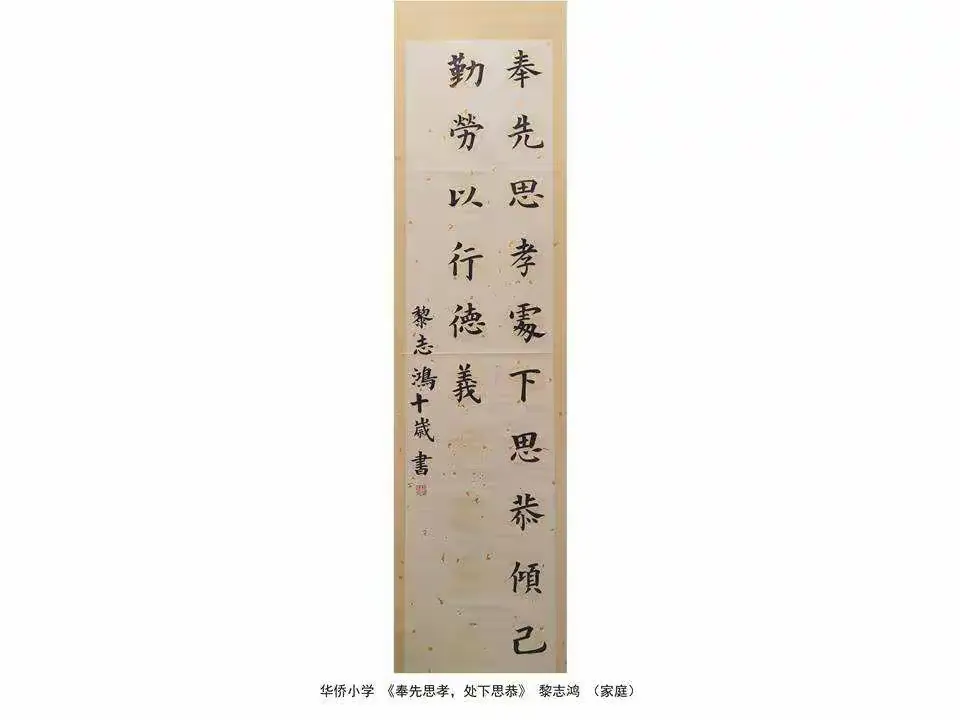 奉先思孝處下思恭傾己
勤勞以行德義
黎志鴻十歲書
华侨小学 《奉先思孝，处下思恭》 黎志鸿 （家庭）